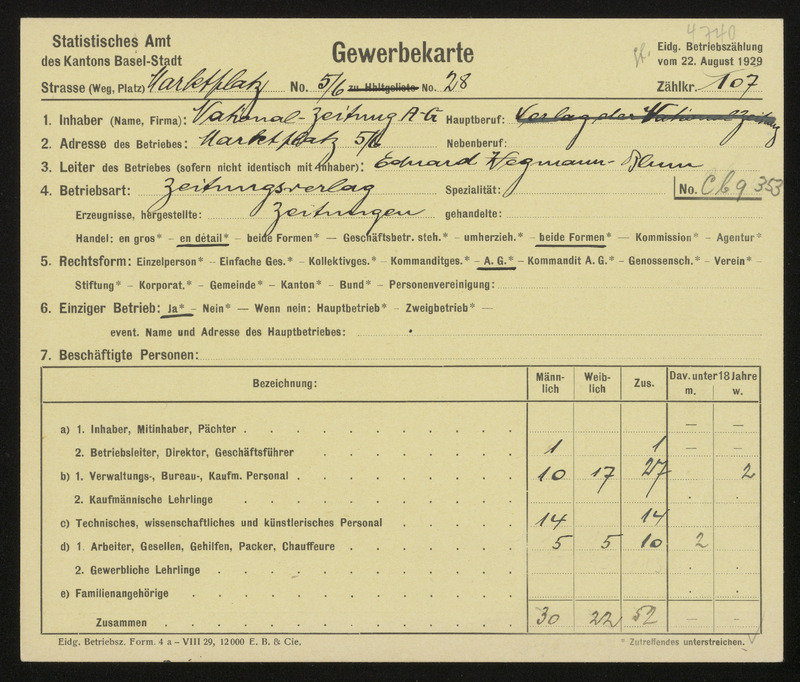 4740
Statistisches Amt
des Kantons Basel-Stadt
Gewerbekarte
Eidg. Betriebszählung
vom 22. August 1929
Strasse (Weg, Platz) Marktplatz No. 5/6 zu Hhltgsliste No. 28 Zählkr. 107
1. Inhaber (Name, Firma): National-Zeitung A-G Hauptberuf: Verlag der Nationalzeitung
2. Adresse des Betriebes: Marktplatz 5/6 Nebenberuf:
3. Leiter des Betriebes (sofern nicht identisch mit Inhaber): Eduard Wegmann-Blum
4. Betriebsart: Zeitungsverlag Spezialität: No. C b 9 353
Erzeugnisse, hergestellte: Zeitungen gehandelte:
Handel: en gros* – en détail* – beide Formen* — Geschäftsbetr. steh.* – umherzieh.* – beide Formen* — Kommission* – Agentur*
5. Rechtsform: Einzelperson* – Einfache Ges.* – Kollektivges.* – Kommanditges.* – A. G.* – Kommandit A. G.* – Genossensch.* – Verein* –
Stiftung* – Korporat.* – Gemeinde* – Kanton* – Bund* – Personenvereinigung:
6. Einziger Betrieb: Ja* – Nein* — Wenn nein: Hauptbetrieb* – Zweigbetrieb* —
event. Name und Adresse des Hauptbetriebes:
7. Beschäftigte Personen:
Bezeichnung: Männlich Weiblich Zus. Dav. unter 18 Jahre
m. w.
a) 1. Inhaber, Mitinhaber, Pächter – –
2. Betriebsleiter, Direktor, Geschäftsführer 1 1 – –
b) 1. Verwaltungs-, Bureau-, Kaufm. Personal 10 17 27 2
2. Kaufmännische Lehrlinge
c) Technisches, wissenschaftliches und künstlerisches Personal 14 14
d) 1. Arbeiter, Gesellen, Gehilfen, Packer, Chauffeure 5 5 10 2
2. Gewerbliche Lehrlinge
e) Familienangehörige
Zusammen 30 22 52 – –
Eidg. Betriebsz. Form. 4 a – VIII 29, 12000 E. B. & Cie. * Zutreffendes unterstreichen.